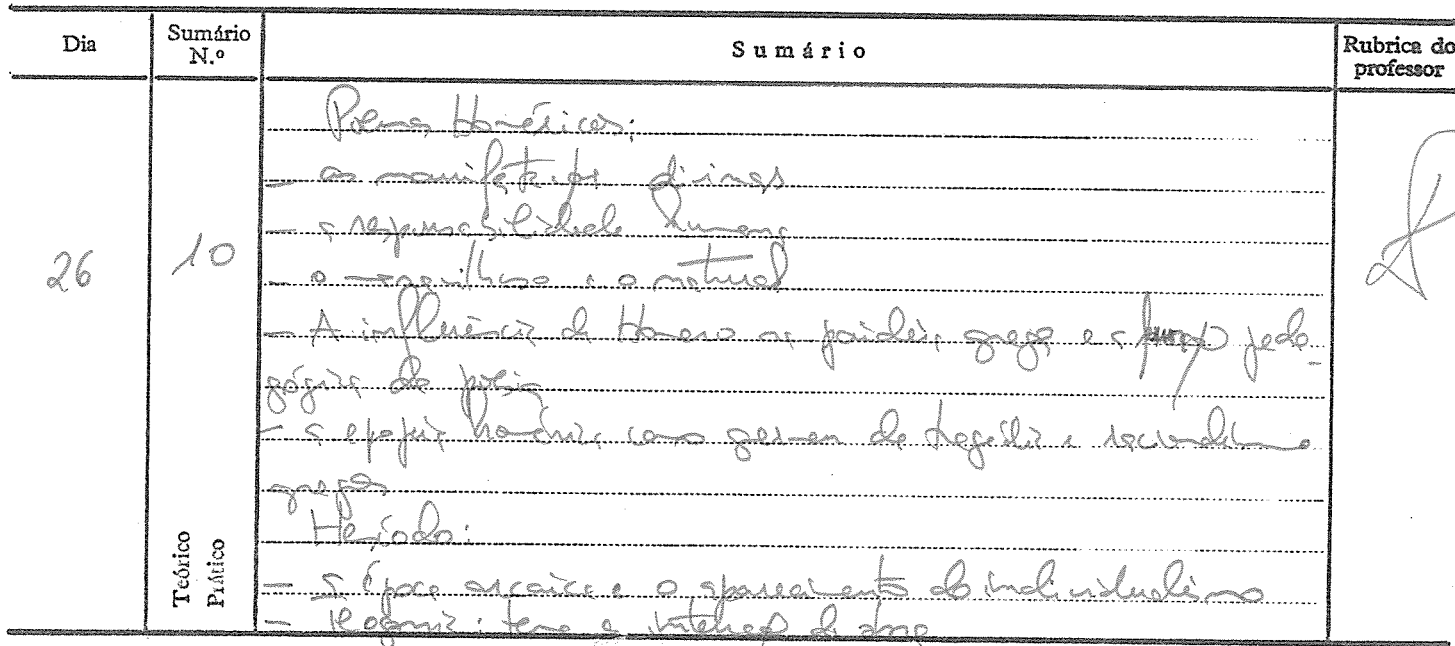 Dia
Sumário N.º
Sumário
Rubrica do professor
26
10
Teórico
Prático
Poemas Homéricos:
- as divinas
- a responsabilidade humana
- o maravilhoso e o natural
- A influência de Homero na paideia grega e a função peda-
gógica da poesia
- a epopeia homérica como germen da tragédia e racionalismo
gregos
Hesíodo:
- a Época arcaica e o aparecimento do individualismo
- Teogonia: tema e intenção da obra